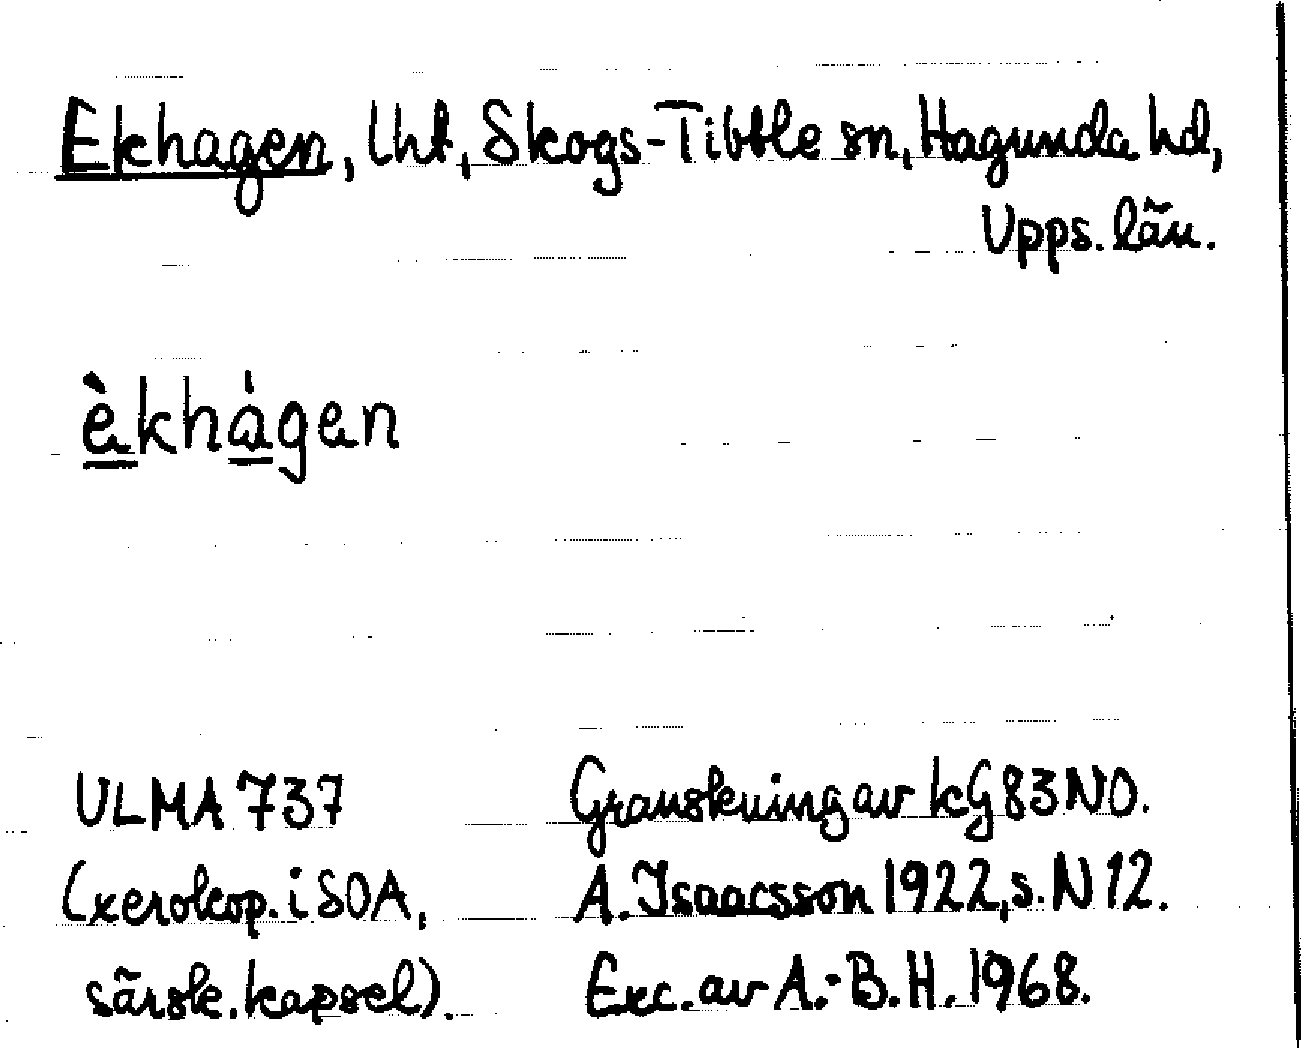 Ekhagen, lht, Skogs-Tibble sn, Hagunda hd,
Upps. län.
èkhágen
ULMA 737
(xerokop. i SOA,
särsk. kapsel).
Granskning av kG 83 NO.
A. Isaacsson 1922, s. N 12.
Exc. av A.-B. H. 1968.